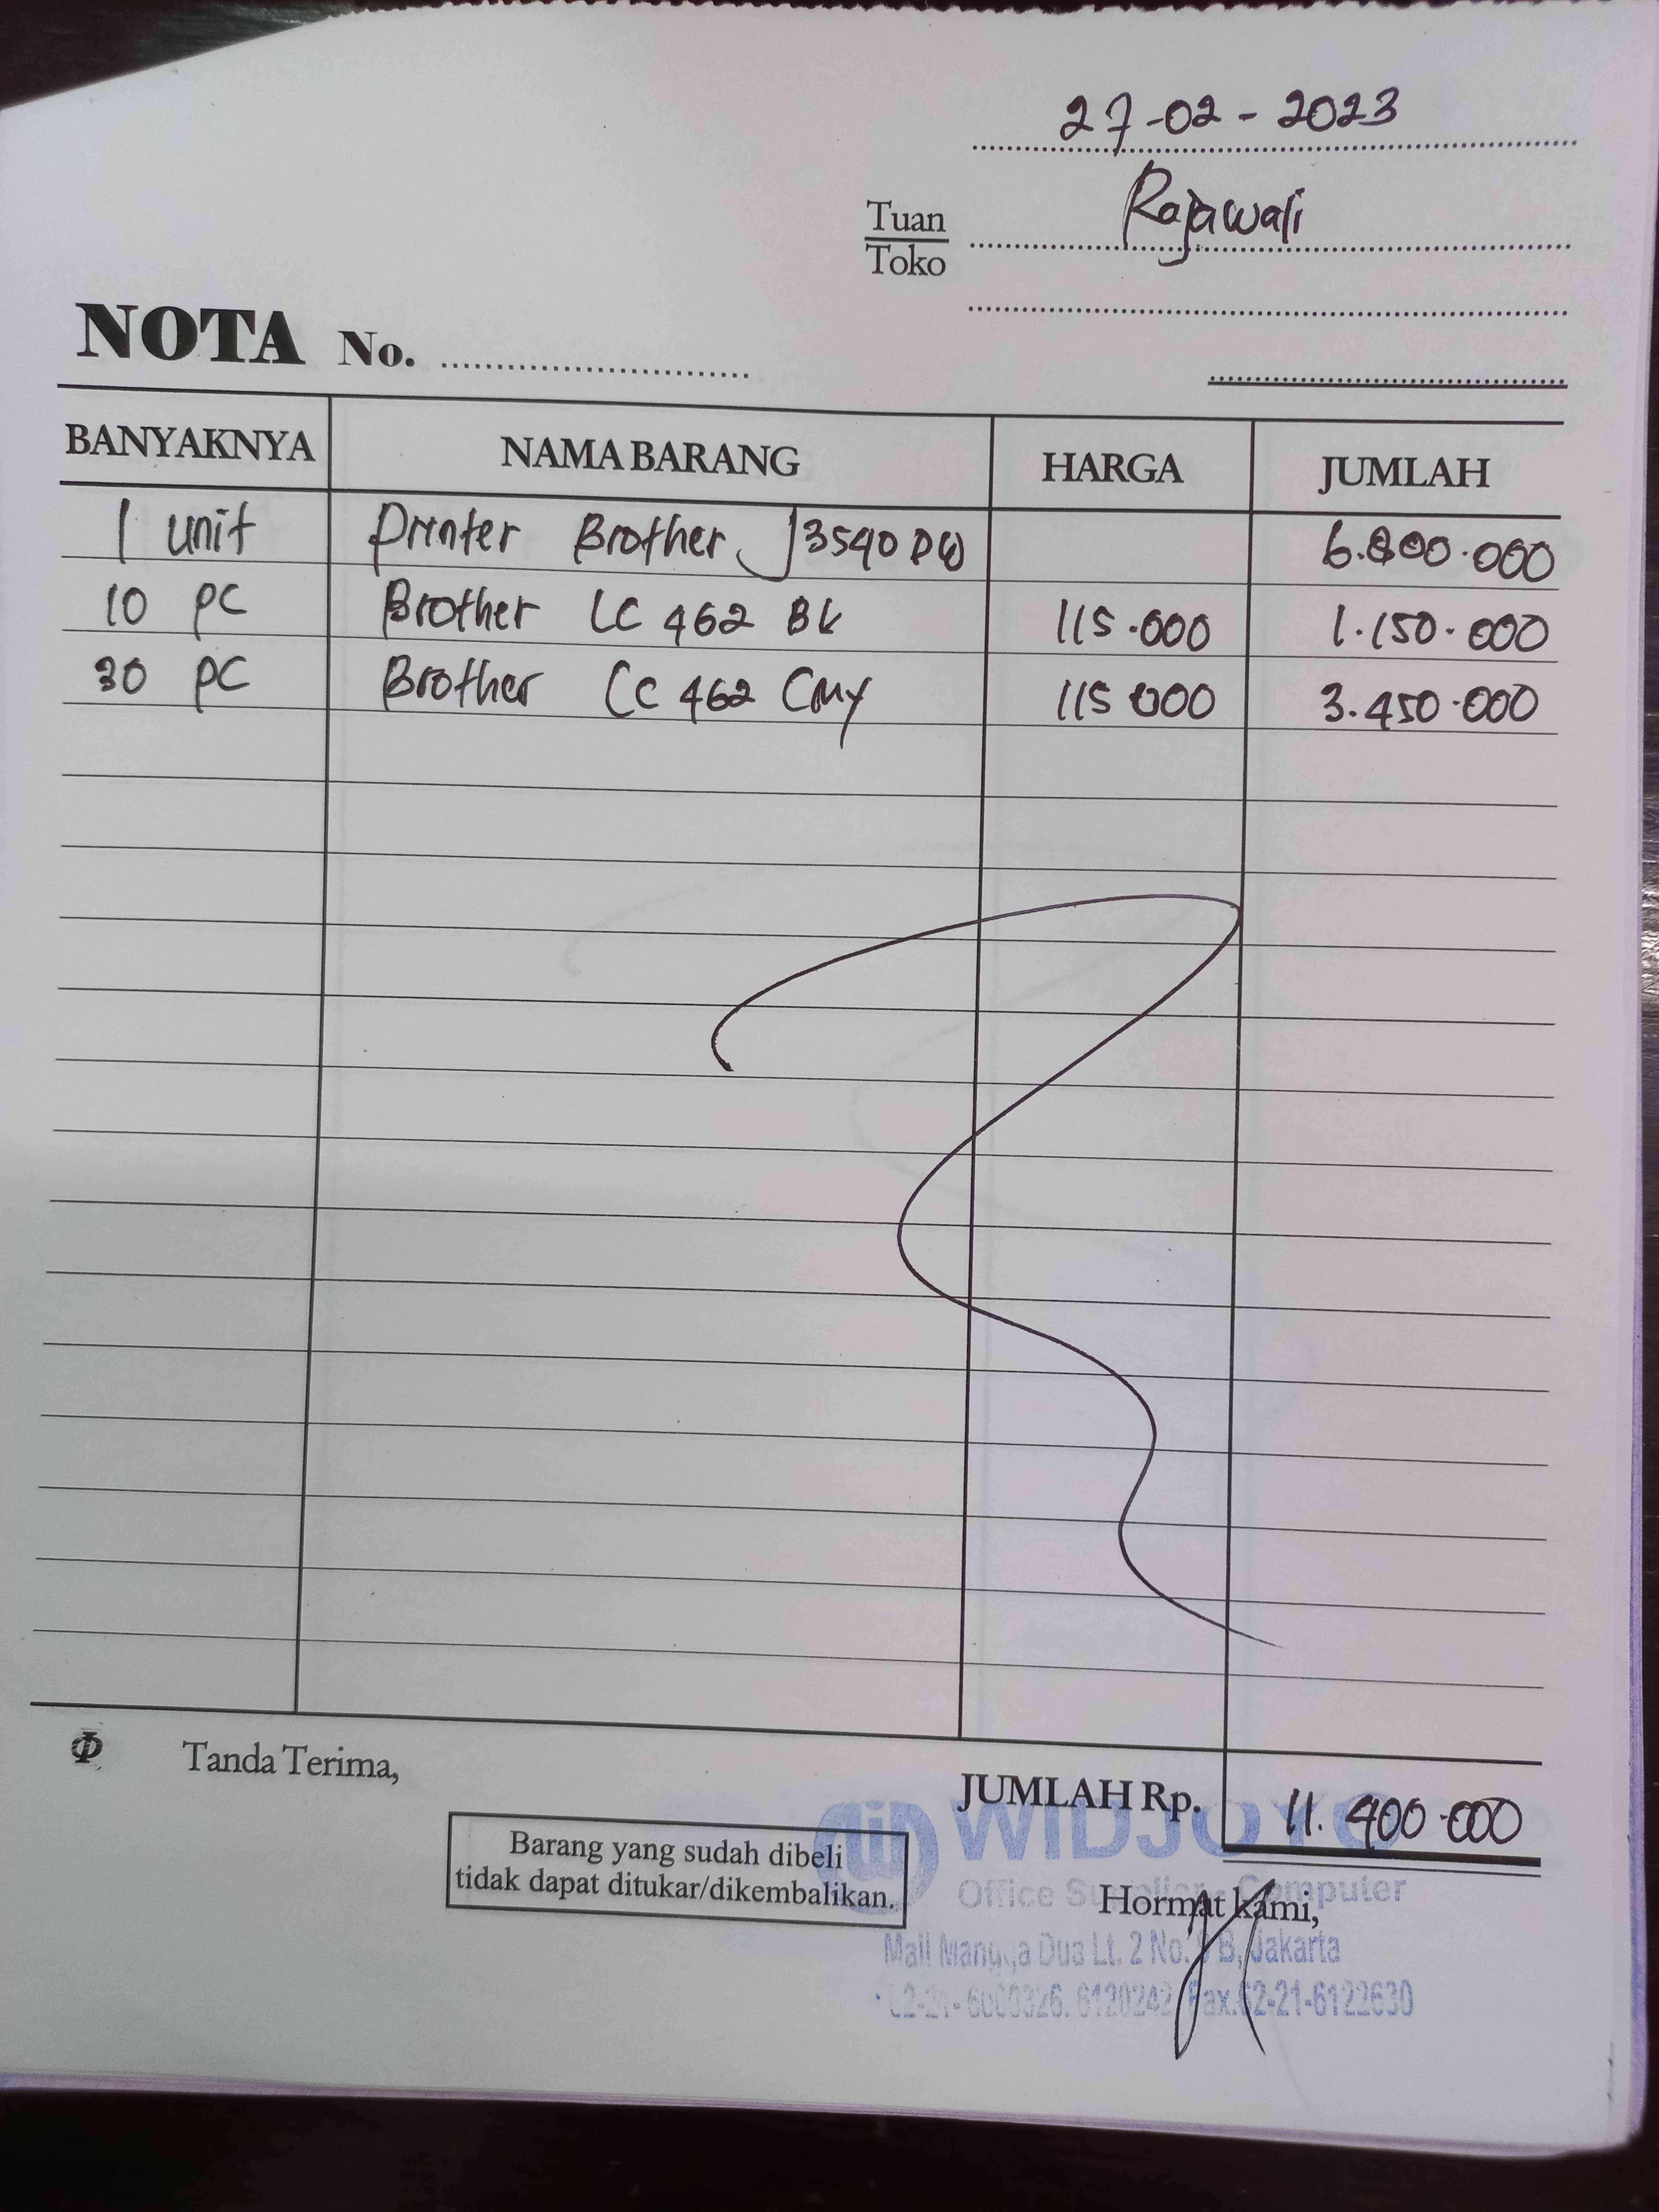 27-02-2023
Tuan
Toko
Rajawali
NOTA No.
BANYAKNYA NAMA BARANG HARGA JUMLAH
1 unit Printer Brother J3540 DW 6.800.000
10 PC Brother LC 462 BK 115.000 1.150.000
30 PC Brother LC 462 CMY 115 000 3.450.000
Tanda Terima,
JUMLAH Rp. 11.400.000
Barang yang sudah dibeli
tidak dapat ditukar/dikembalikan.
WIDJOYO
Office Supplier - Computer
Hormat kami,
Mall Mangga Dua Lt. 2 No. B, Jakarta
6120242 Fax.62-21-6122630